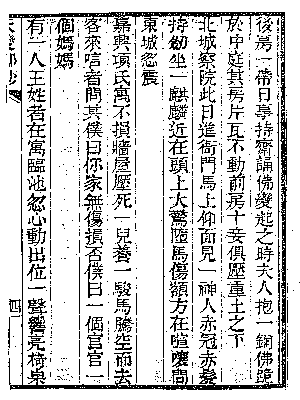 後房一帶日事持齋誦佛變起之時夫人抱一銅佛跪
於中庭其房片瓦不動前房十妾俱壓重土之下
北城察院此日進衙門馬上仰面見一神人赤冠赤髮
持劒坐一麒麟近在頭上大驚墮馬傷額方在喧嚷間
東城忽震
嘉興項氏寓不損牆屋壓死一兒養一駿馬騰空而去
客來唁者問其僕曰你家無傷損否僕曰一個官官一
個媽媽
有一人王姓者在寓臨池忽心動出位一聲響亮椅桌
四